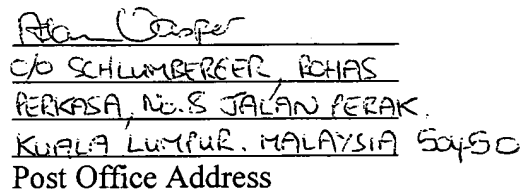 Alan Casper
C/O SCHLUMBERGER, ROHAS
PERKASA, No. 8 JALAN PERAK.
KUALA LUMPUR. MALAYSIA 50450
Post Office Address